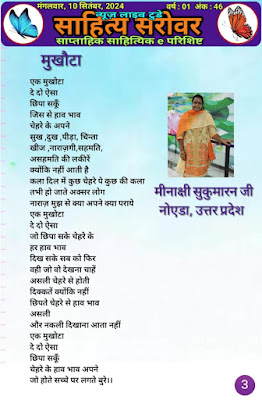 मंगलवार, 10 सितंबर, 2024
वर्ष : 01 अंक : 46
न्यूज लाइव टुडे
साहित्य सरोवर
साप्ताहिक साहित्यिक e परिशिष्ट
मुखौटा
एक मुखौटा
दे दो ऐसा
छिपा सकूँ
जिस से हाव भाव
चेहरे के अपने
सुख ,दुख ,पीड़ा, चिन्ता
खीज ,नाराज़गी,सहमति,
असहमति की लकीरें
क्योंकि नहीं आती है
कला दिल में कुछ चेहरे पे कुछ की कला
तभी हो जाते अक्सर लोग
नाराज़ मुझ से क्या अपने क्या पराये
एक मुखौटा
दे दो ऐसा
जो छिपा सके चेहरे के
हर हाव भाव
दिख सके सब को फिर
वही जो वो देखना चाहें
असली चेहरे से होती
दिक्कतें क्योंकि नहीं
छिपते चेहरे से हाव भाव
असली
और नकली दिखाना आता नहीं
एक मुखौटा
दे दो ऐसा
छिपा सकूँ
चेहरे के हाव भाव अपने
जो होते सच्चे पर लगते बुरे।।
मीनाक्षी सुकुमारन जी
नोएडा, उत्तर प्रदेश
3